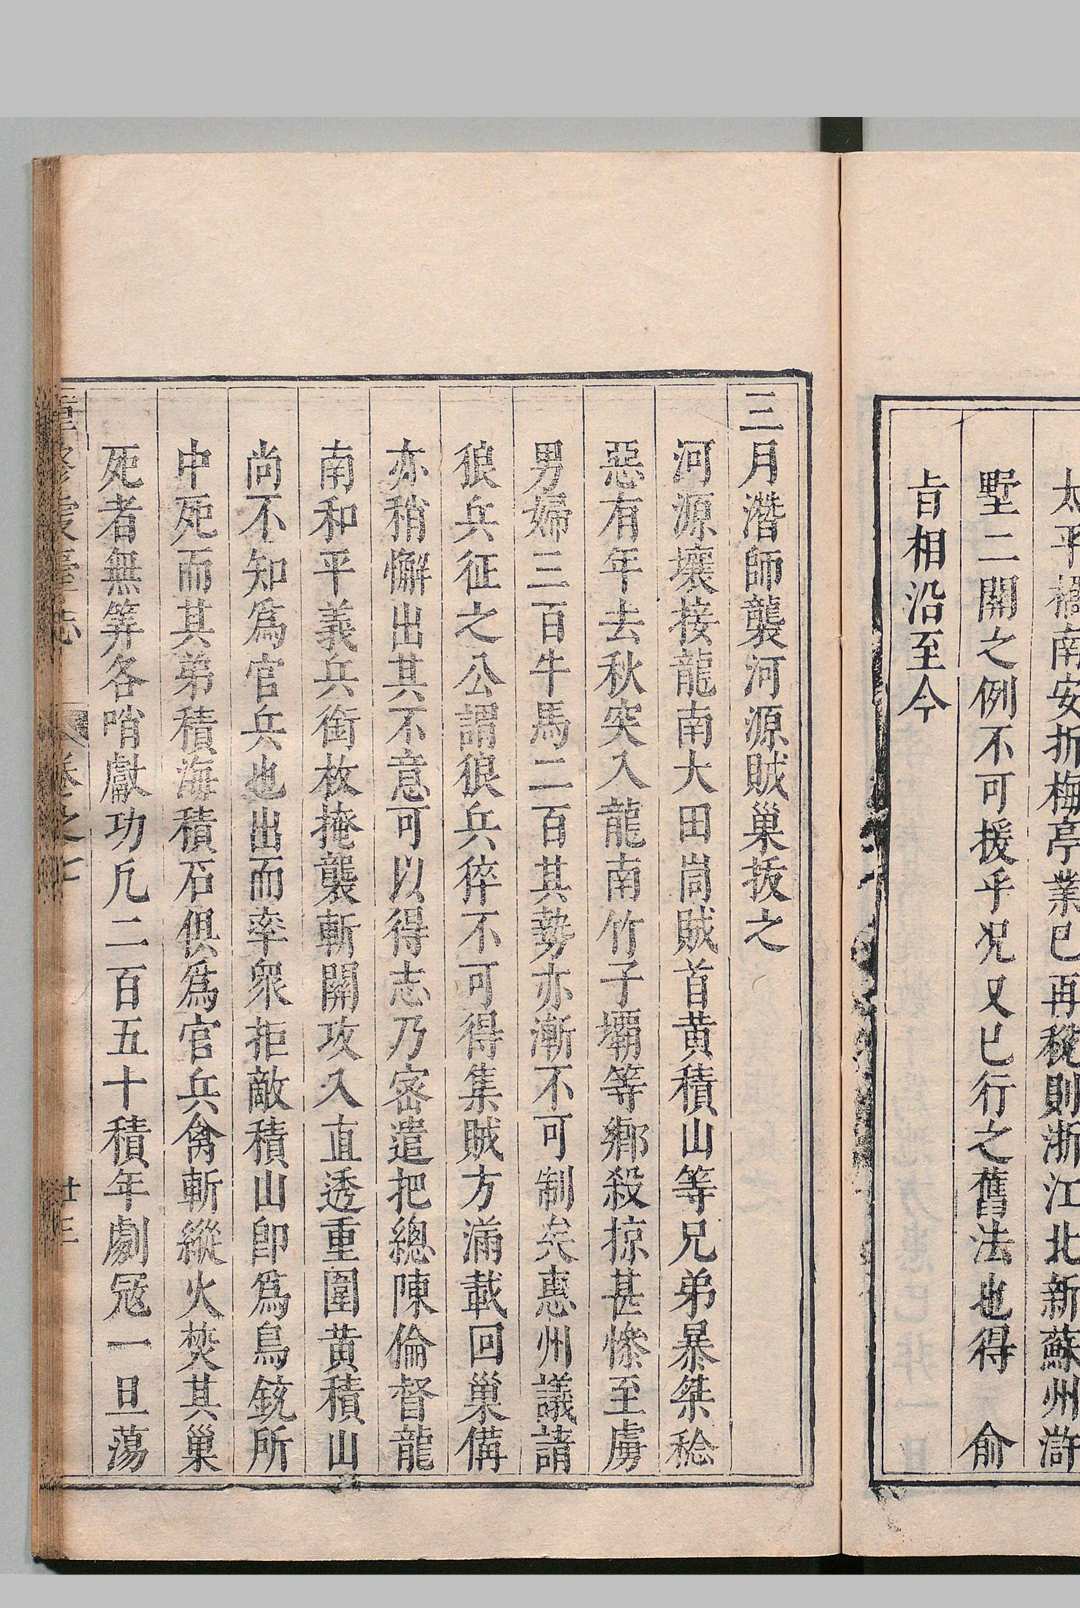 太平橋南安折梅亭業已再稅則浙江北新蘇州滸
墅二關之例不可援乎況又已行之舊法也得　俞
旨相沿至今
三月潛師襲河源賊巢拔之
河源壤接龍南大田峝賊首黃積山等兄弟暴桀稔
惡有年去秋突入龍南竹子壩等鄉殺掠甚慘至虜
男婦三百牛馬二百其勢亦漸不可制矣惠州議請
狼兵征之公謂狼兵猝不可得集賊方滿載回巢備
亦稍懈出其不意可以得志乃密遣把總陳倫督龍
南和平義兵銜枚掩襲斬關攻入直透重圍黃積山
尚不知爲官兵也出而率衆拒敵積山卽爲鳥銃所
中死而其弟積海積石俱爲官兵禽斬縱火焚其巢
死者無筭各哨獻功凡二百五十積年劇冦一旦蕩
重修虔臺志　卷之七　廿三